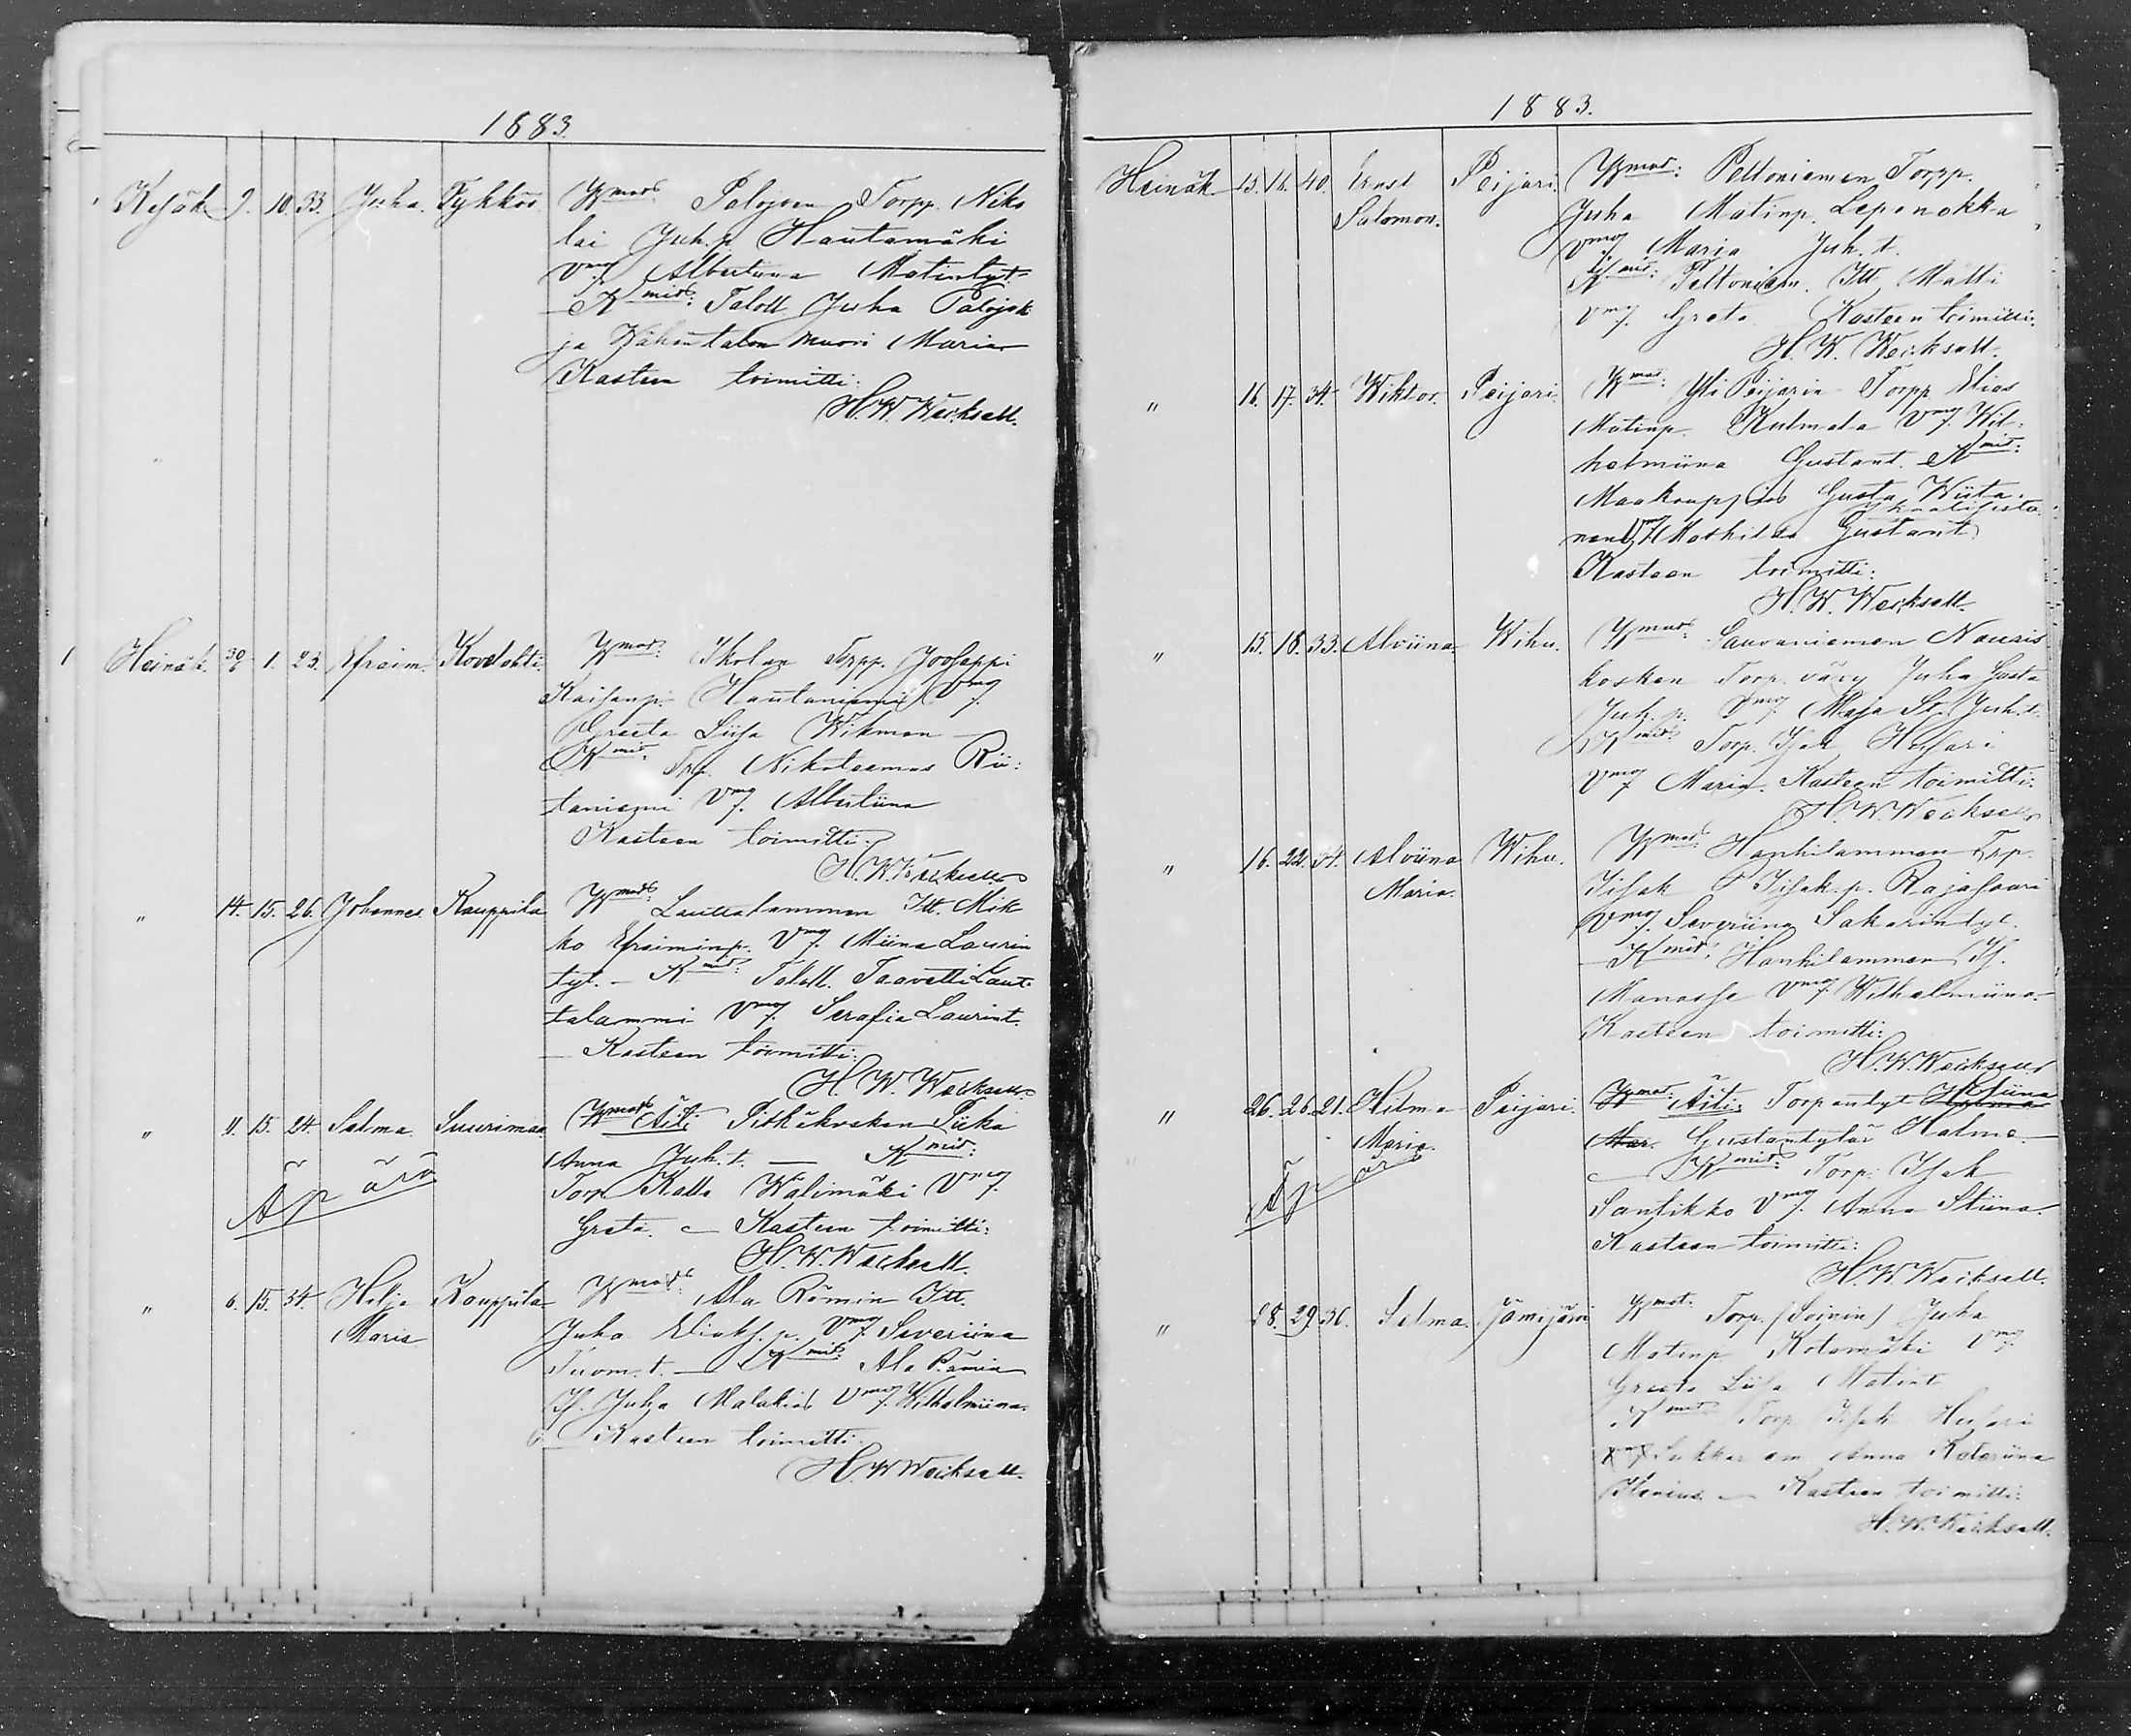 1883.
Kesäk. 9. 10. 33. Juha. Tykköö. Wmmat: Palojoen Torpp. Niko
lai Juh. p. Hautamäki
Vmo/. Albertina Matintyt.
Kmit: Taloll. Juha Palojok
ja Wähäntalon muori Maria
Kasteen toimitti:
H. W. Weiksell.
1 Heinäk. 30/6 1. 23. Efraim. Kovelahti. Wmmat: Torpp. Jooseppi
Hautaniemi Vmo/.
Greeta Liisa Wikman
Kmit: Trp. Nikoteemus Rii:
taniemi Vmo/. Albertiina
Kasteen toimitti:
H. W. Weiksell
" 14. 15. 26. Johannes. Kauppila Wmmat: Lauttalammen Itt. Mik
ko Efraiminp. Vmo/. Miina Laurin
tyt. – Kmit: Taloll. Taavetti Laut
talammi Vmo/. Serafia Laurint.
– Kasteen toimitti:
H. W. Weiksell
" 11. 15. 24. Selma. Suurimaa Wmmat: Äiti: Pitkäkosken Piika
Anna Juh. t. — Kmit:
Torp. Kalle Walimäki Vmo/.
Äp äro
Greta. – Kasteen toimitti:
H. W. Weiksell.
" 6. 15. 34. Hilja Kauppila Wmmat: Ala Römin Itt.
Maria Juha Vmo/. Severiina
Tuom. t. — Kmit: Ala Römin
If. Juha Malakias Vmo/. Wilhelmiina.
Kasteen toimitti:
H. W. Weiksell.
1883.
Heinäk. 15. 16. 40. Ernst Peijari. Wmmat: Peltoniemen Torpp.
Salomon. Juha Matinp. Leponokka
Vmo/. Maria Juh. t.
Kmit: Peltoniem. Itt. Matti
Vmo/. Greta. Kasteen toimitti:
H. W. Weiksell.
" 16. 17. 34. Wiktor. Peijari. Wmmat: Yli Peijarin Torpp. Elias
Matinp. Kulmala Vmo/. Wil:
helmiina Gustant. Kmit:
Maakaupp/ias Gusta Wiita
nen Mathilda Gustant.
Kasteen toimitti:
H. W. Weiksell.
" 15. 18. 33. Alviina. Wihu. Wmmat: Sauvaniemen Nauris
kosken Torp. väry Juha Gusta
Juh. p. Vmo/. Maja St. Juh. t.
Kmit: Torp. Isak Husari
Vmo/. Maria. Kasteen toimitti:
H. W. Weiksell
" 16. 22. 34. Alviina Wihu. Wmmat: Hankilammen Trp.
Maria. Iisak Iisak. p. Rajasaari
Vmo/. Severiina Sakarintyt.
– Kmit: Hankilammen If.
Manasse Vmo/. Wilhelmiina.
Kasteen toimitti:
H. W. Weiksell
" 26. 26. 21. Hilma Peijari. Wmmat: Äiti: Torpantyt
Maria. Gustantytär Halme.
Äp äro – Kmit: Torp. Isak
Santikko Vmo/. Anna Stiina.
Kasteen toimitti:
H. W. Weiksell.
" 28. 29. 30. Selma. Jämijärvi Wmmat: Torp. (Soinin) Juha
Matinp. Kotamäki Vmo/.
Greeta Liisa Matint.
Kmit: Torp. Isak Husari
Sukkar em. Anna Katariina
– Kasteen toimitti:
H. W. Weiksell.